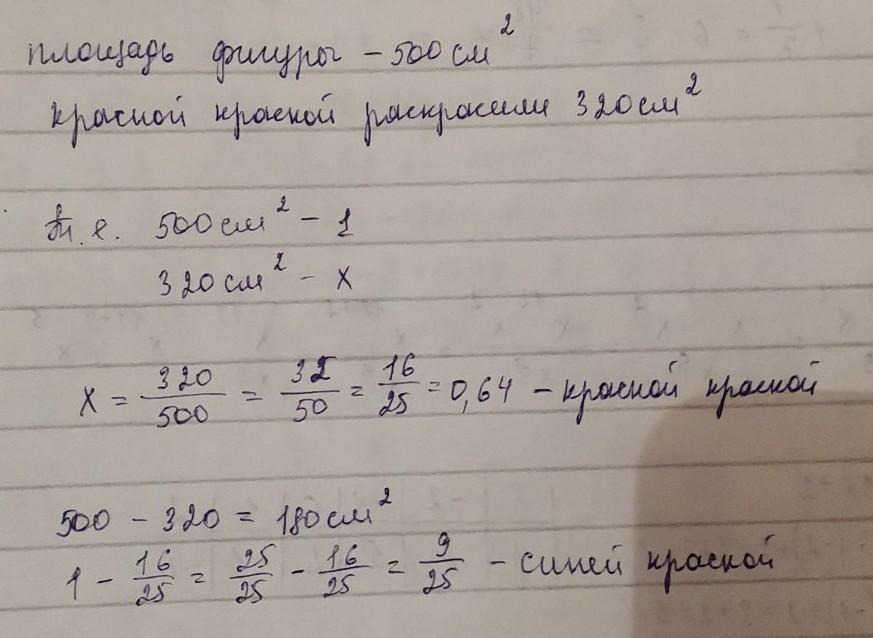 площадь фигуры - 500 см²
красной краской раскрасили 320 см²
т.е. 500 см² - 1
320 см² - x
x = 320/500 = 32/50 = 16/25 = 0,64 - красной краской
500 - 320 = 180 см²
1 - 16/25 = 25/25 - 16/25 = 9/25 - синей краской